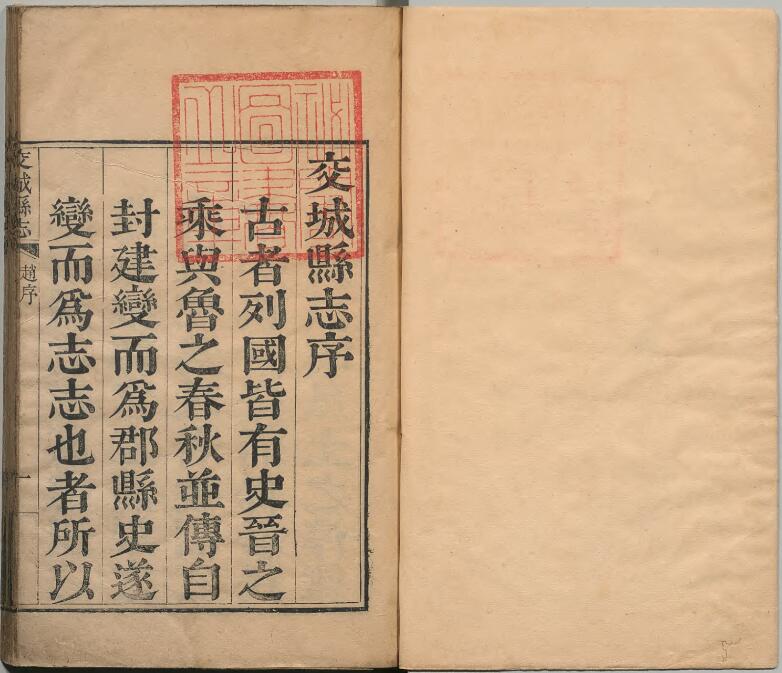 交城縣志序
古者列國皆有史晉之
乘與魯之春秋並傳自
封建變而爲郡縣史遂
變而爲志志也者所以
交城縣志
趙序
一